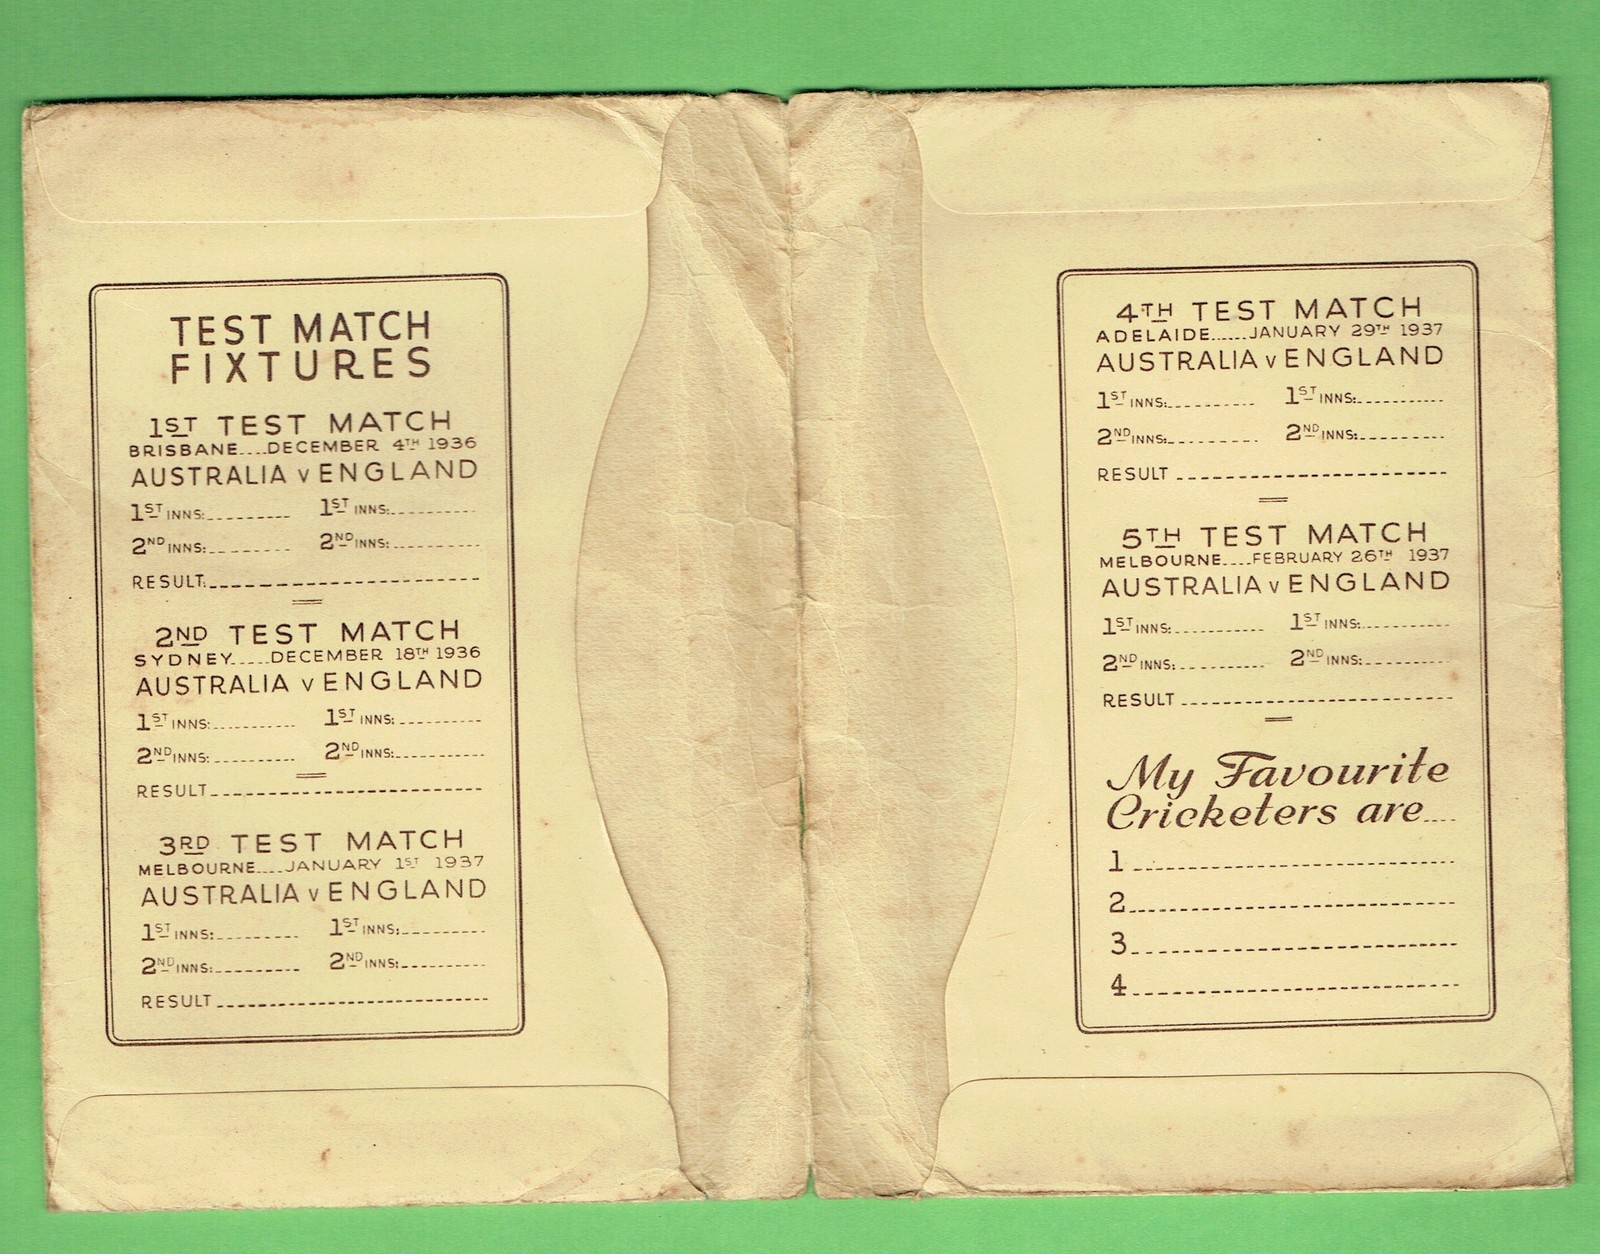 TEST MATCH
FIXTURES
1ST TEST MATCH
BRISBANE....DECEMBER 4TH 1936
AUSTRALIA v ENGLAND
1ST INNS:.......... 1ST INNS:..........
2ND INNS:.......... 2ND INNS:..........
RESULT:..............................
2ND TEST MATCH
SYDNEY.....DECEMBER 18TH 1936
AUSTRALIA v ENGLAND
1ST INNS:.......... 1ST INNS:..........
2ND INNS:.......... 2ND INNS:..........
RESULT..............................
3RD TEST MATCH
MELBOURNE....JANUARY 1ST 1937
AUSTRALIA v ENGLAND
1ST INNS:.......... 1ST INNS:..........
2ND INNS:.......... 2ND INNS:..........
RESULT..............................
4TH TEST MATCH
ADELAIDE......JANUARY 29TH 1937
AUSTRALIA v ENGLAND
1ST INNS:.......... 1ST INNS:..........
2ND INNS:.......... 2ND INNS:..........
RESULT..............................
5TH TEST MATCH
MELBOURNE....FEBRUARY 26TH 1937
AUSTRALIA v ENGLAND
1ST INNS:.......... 1ST INNS:..........
2ND INNS:.......... 2ND INNS:..........
RESULT..............................
My Favourite
Cricketers are....
1..............................
2..............................
3..............................
4..............................